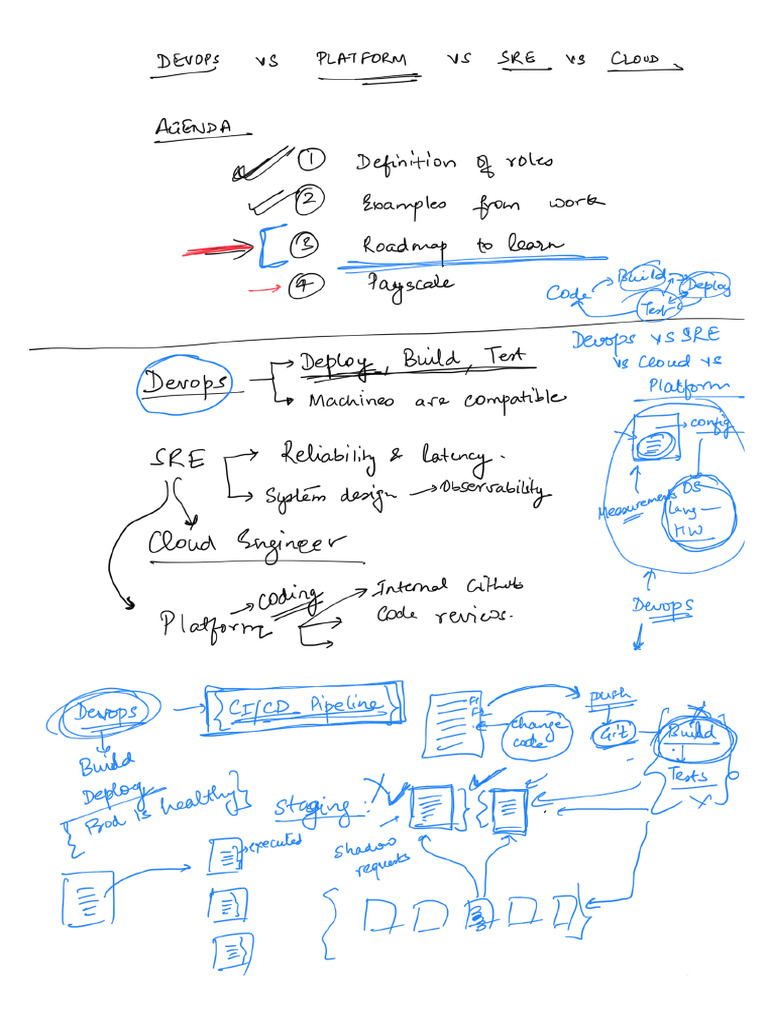 DEVOPS vs PLATFORM vs SRE vs CLOUD
AGENDA
① Definition of roles
② Examples from work
③ Roadmap to learn
④ Payscale
Code Build Test Deploy
Devops vs SRE
vs Cloud vs
Platform
Devops
Deploy, Build, Test
Machines are compatible
config
OS
Lang
HW
Measurements
Devops
SRE
Reliability & Latency.
System design → Observability
Cloud Engineer
Platform
coding
Internal Github
Code reviews.
Devops
{CI/CD Pipeline}
change
code
push
Git
Build
Tests
Build
Deploy
{Prod is healthy}
Staging :
Shadow
requests
executed